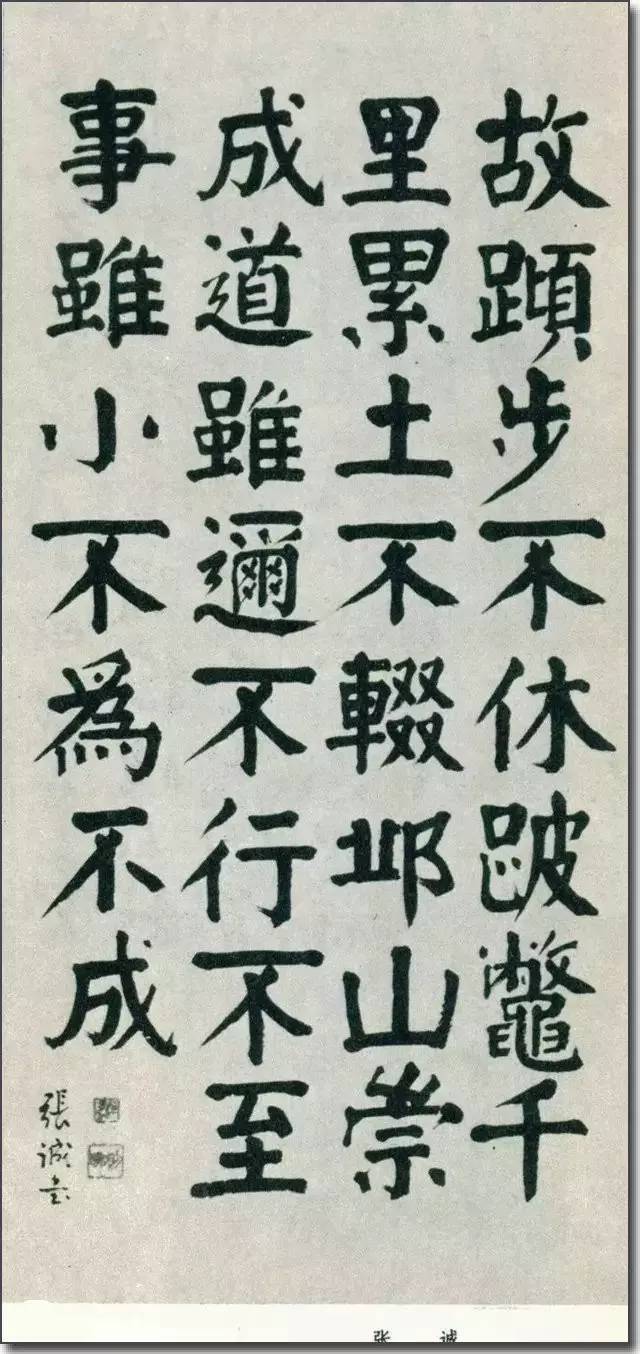 故蹞步不休跛鼈千
里累土不輟邱山崇
成道雖邇不行不至
事雖小不爲不成
張诚书
张 诚